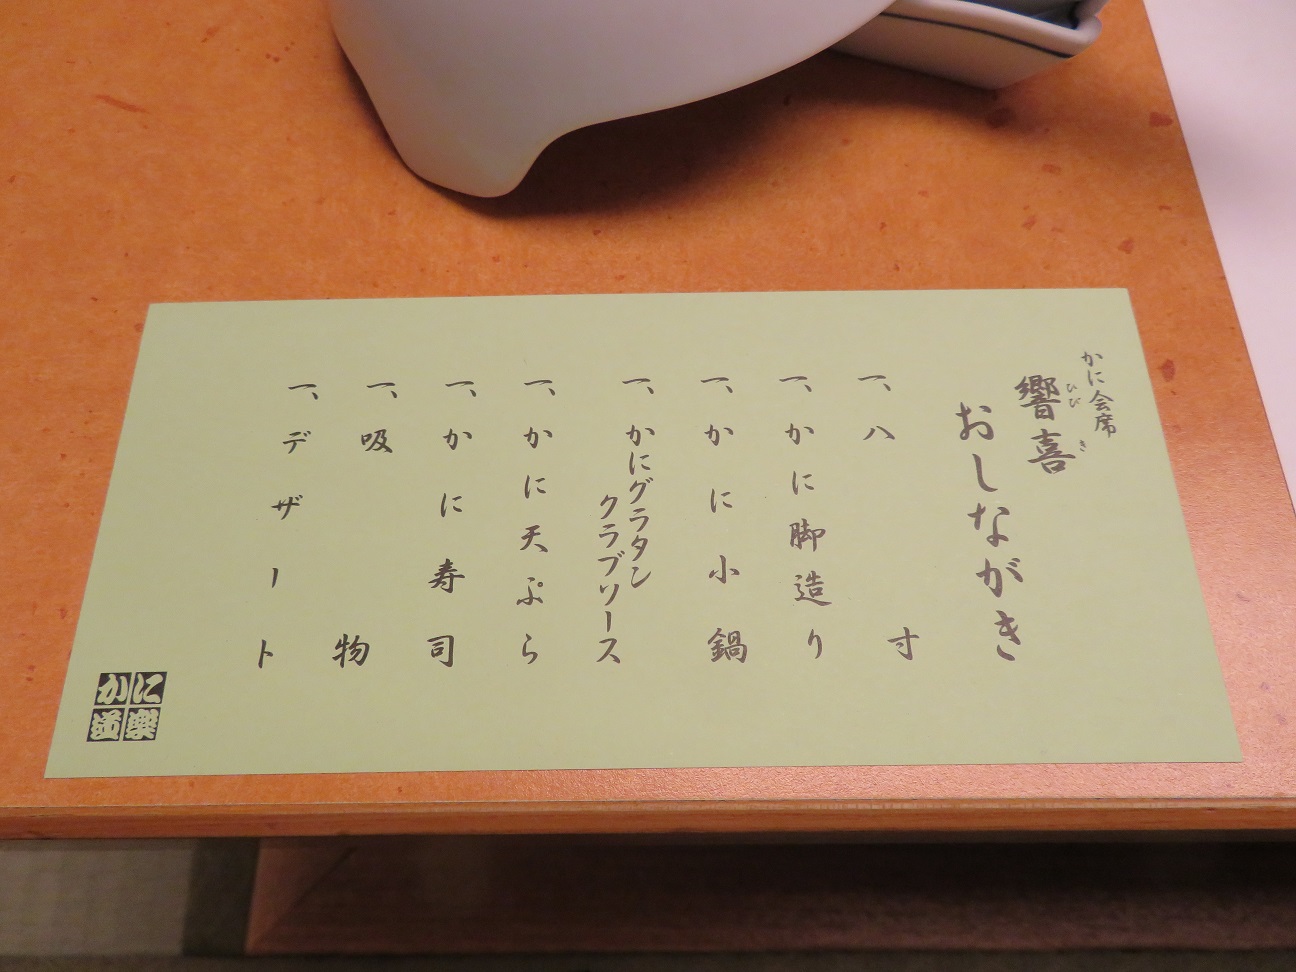 かに会席
響喜
ひびき
おしながき
一、八寸
一、かに脚造り
一、かに小鍋
一、かにグラタン
クラブソース
一、かに天ぷら
一、かに寿司
一、吸物
一、デザート
かに
道楽